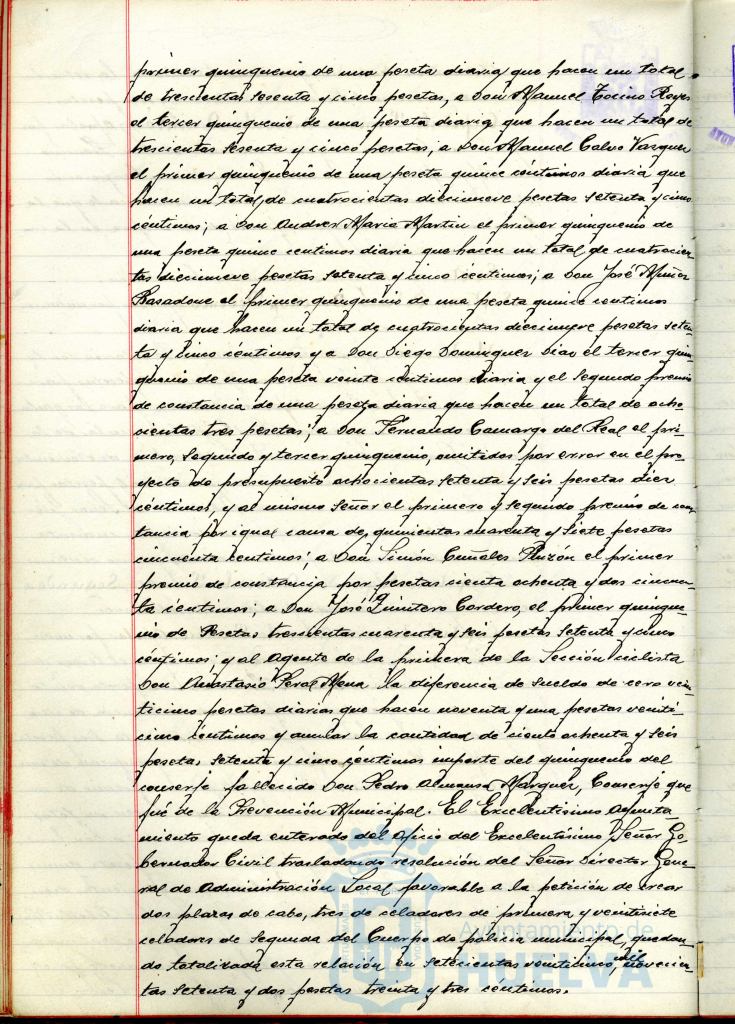 primer quinquenio de una peseta diaria que hacen un total
de trescientas sesenta y cinco pesetas, a Don Manuel Tocino Reyes
el tercer quinquenio de una peseta diaria que hacen un total de
trescientas sesenta y cinco pesetas, a Don Manuel Calvo Vazquez
el primer quinquenio de una peseta quince céntimos diaria que
hacen un total de cuatrocientas diecinueve pesetas setenta y cinco
céntimos; a Don Andres Maria Martin el primer quinquenio de
una peseta quince centimos diaria que hacen un total de cuatrocien-
tas diecinueve pesetas setenta y cinco centimos; a Don José Muñoz
Rasadone el primer quinquenio de una peseta quince centimos
diaria que hacen un total de cuatrocientas diecinueve pesetas seten-
ta y cinco céntimos y a Don Diego Dominguez Diaz el tercer quin-
quenio de una peseta veinte céntimos diaria y el segundo premio
de constancia de una peseta diaria que hacen un total de ocho-
cientas tres pesetas; a Don Fernando Camargo del Real el pri-
mero, segundo y tercer quinquenio, omitidos por error en el pro-
yecto de presupuesto ochocientas setenta y seis pesetas diez
céntimos, y al mismo Señor el primero y segundo premio de cons-
tancia por igual causa de quinientas cuarenta y siete pesetas
cincuenta centimos; a Don Simón Cuñales Pinzón el primer
premio de constancia por pesetas ciento ochenta y dos cincuen-
ta céntimos; a Don José Quintero Cordero, el primer quinque-
nio de Pesetas trescientas cuarenta y seis pesetas setenta y cinco
céntimos; y al Agente de la primera de la Sección ciclista
Don Anastasio Peral Mena la diferencia de sueldo de cero vein-
ticinco pesetas diarias que hacen noventa y una pesetas veinti-
cinco céntimos y anular la cantidad de ciento ochenta y seis
pesetas setenta y cinco céntimos importe del quinquenio del
conserje fallecido Don Pedro Almansa Márquez, Conserje que
fué de la Prevención Municipal. El Excelentísimo Ayunta-
miento queda enterado del oficio del Excelentísimo Señor Go-
bernador Civil trasladando resolución del Señor Director Gene-
ral de Administración Local favorable a la petición de crear
dos plazas de cabo, tres de celadores de primera y veintisiete
celadores de segunda del Cuerpo de policia municipal, quedan-
do totalizada esta relación en setecientas veinticinco mil novecien-
tas setenta y dos pesetas treinta y tres céntimos.
Ayuntamiento de
HUELVA